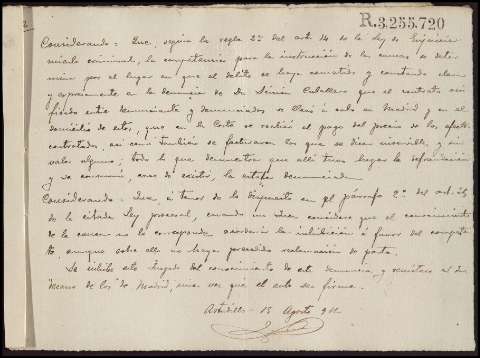 R.3.255.720
Considerando: Que, según la regla 2ª del art. 14 de la Ley de Enjuicia-
miento criminal, la competencia para la instrucción de las causas se deter-
mina por el lugar en que el delito se haya cometido y constando clara
y expresamente a la denuncia de Dn Caballero que el contrato
entre denunciante y denunciados se llevó a cabo en Madrid y en el
domicilio de estos, pues en la Corte se realizó el pago del precio de los efectos
contratados, así como también se facturaron los que se dicen inservibles y sin
valor alguno; todo lo que demuestra que allí tuvo lugar la defraudación
y se consumó, caso de existir, la estafa denunciada.
Considerando: Que, a tenor de lo dispuesto en el párrafo 2º del art.
de la citada Ley procesal, cuando un Juez considere que el conocimiento
de la causa no le corresponde acordará la inhibición a favor del competen-
te, aunque sobre ello no haya precedido reclamación de parte.
Se inhibe este Juzgado del conocimiento de esta denuncia, y remítase al De-
cano de los de Madrid, una vez que el auto sea firme.
Astudillo - 13 Agosto 911